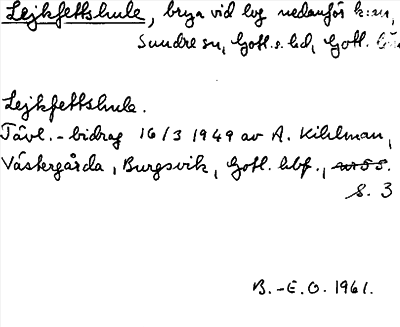 Lejkfettshule, brya vid lvg nedanför k:an,
Sundre sn, Gotl. s. hd, Gotl. län
Lejkfettshule.
Tävl.-bidrag 16/3 1949 av A. Kihlman,
Västergårda, Burgsvik, Gotl. hbf.,
s. 3
B.-E.O. 1961.